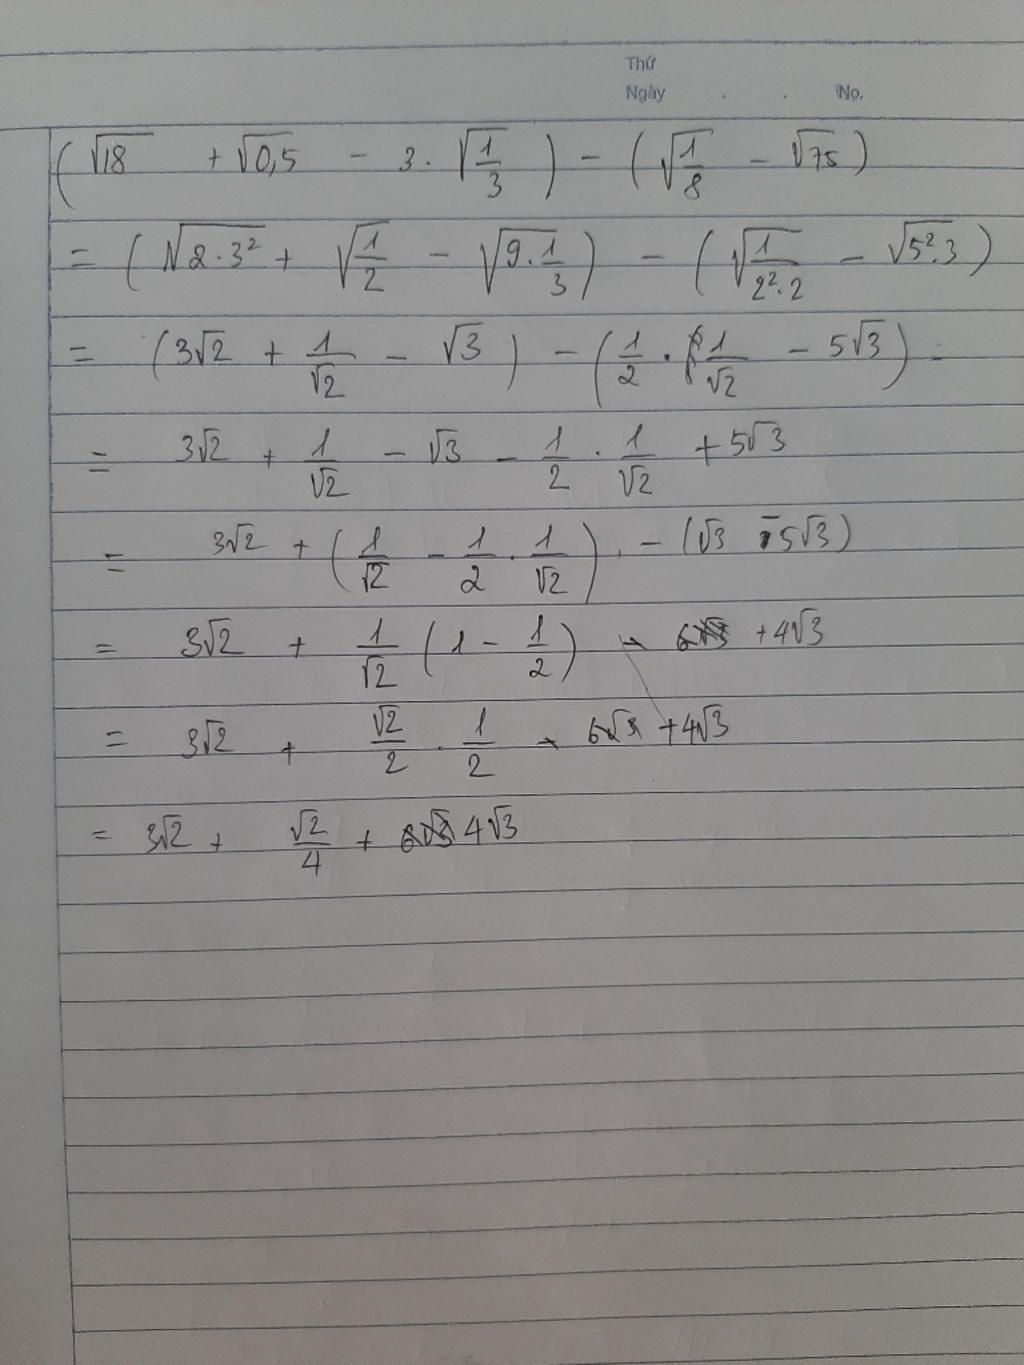 Thứ
Ngày . . No.
(√18 + √0,5 - 3.√(1/3)) - (√(1/8) - √75)
= (√(2.3²) + √(1/2) - √(9.1/3)) - (√(1/(2².2)) - √(5².3))
= (3√2 + 1/√2 - √3) - (1/2 . 1/√2 - 5√3)
= 3√2 + 1/√2 - √3 - 1/2 . 1/√2 + 5√3
= 3√2 + (1/√2 - 1/2 . 1/√2) - (√3 - 5√3)
= 3√2 + 1/√2 (1 - 1/2) + 4√3
= 3√2 + √2/2 . 1/2 + 4√3
= 3√2 + √2/4 + 4√3